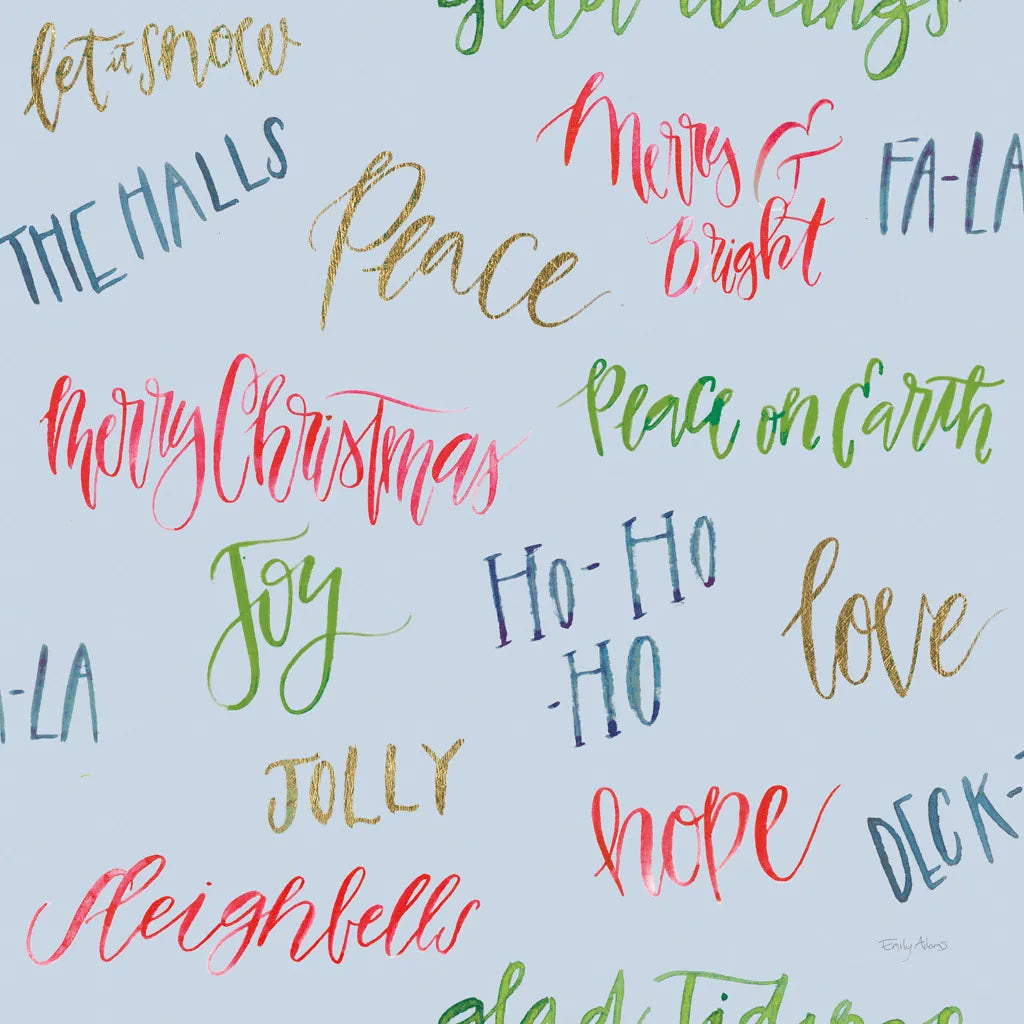 glad tidings
let it snow
Merry &
Bright
FA-LA
THE HALLS
Peace
Merry Christmas
Peace on Earth
Joy
HO-HO
-HO
love
-LA
JOLLY
hope
DECK-
Sleighbells
Emily Adams
glad Tidings